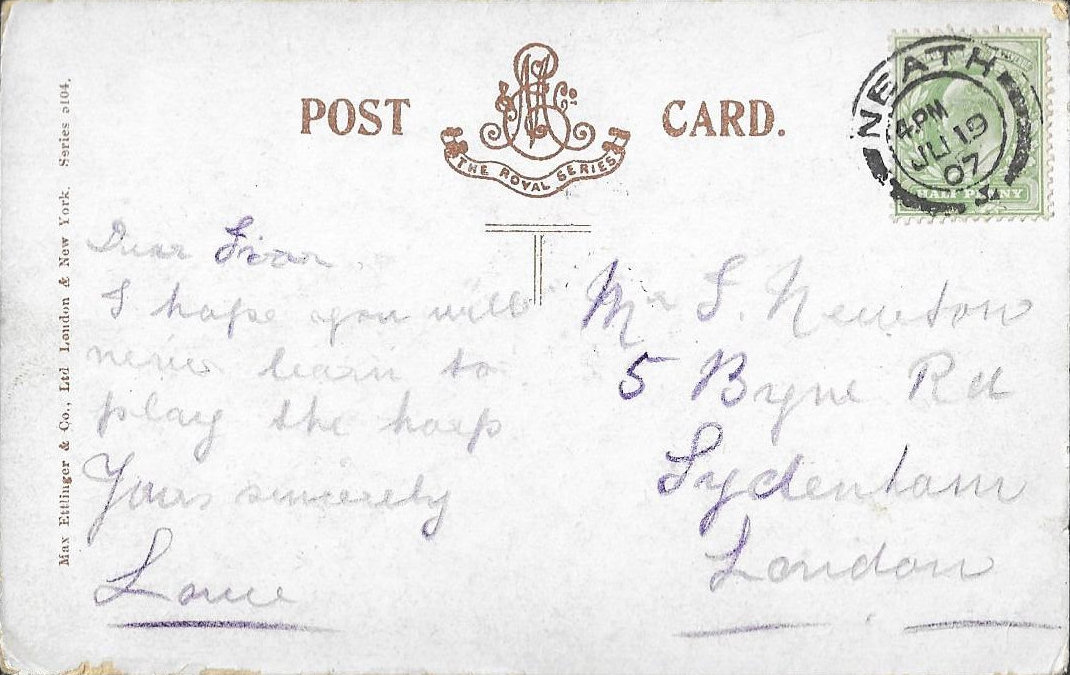 POST CARD.
M E & Co.
THE ROYAL SERIES
NEATH
4.PM
JU 19
07
HALFPENNY
Max Ettlinger & Co., Ltd London & New York. Series 5104.
Dear
I hope you will
never learn to
play the harp
Yours sincerely
Mr S. Newton
5 Byne Rd
Sydenham
London